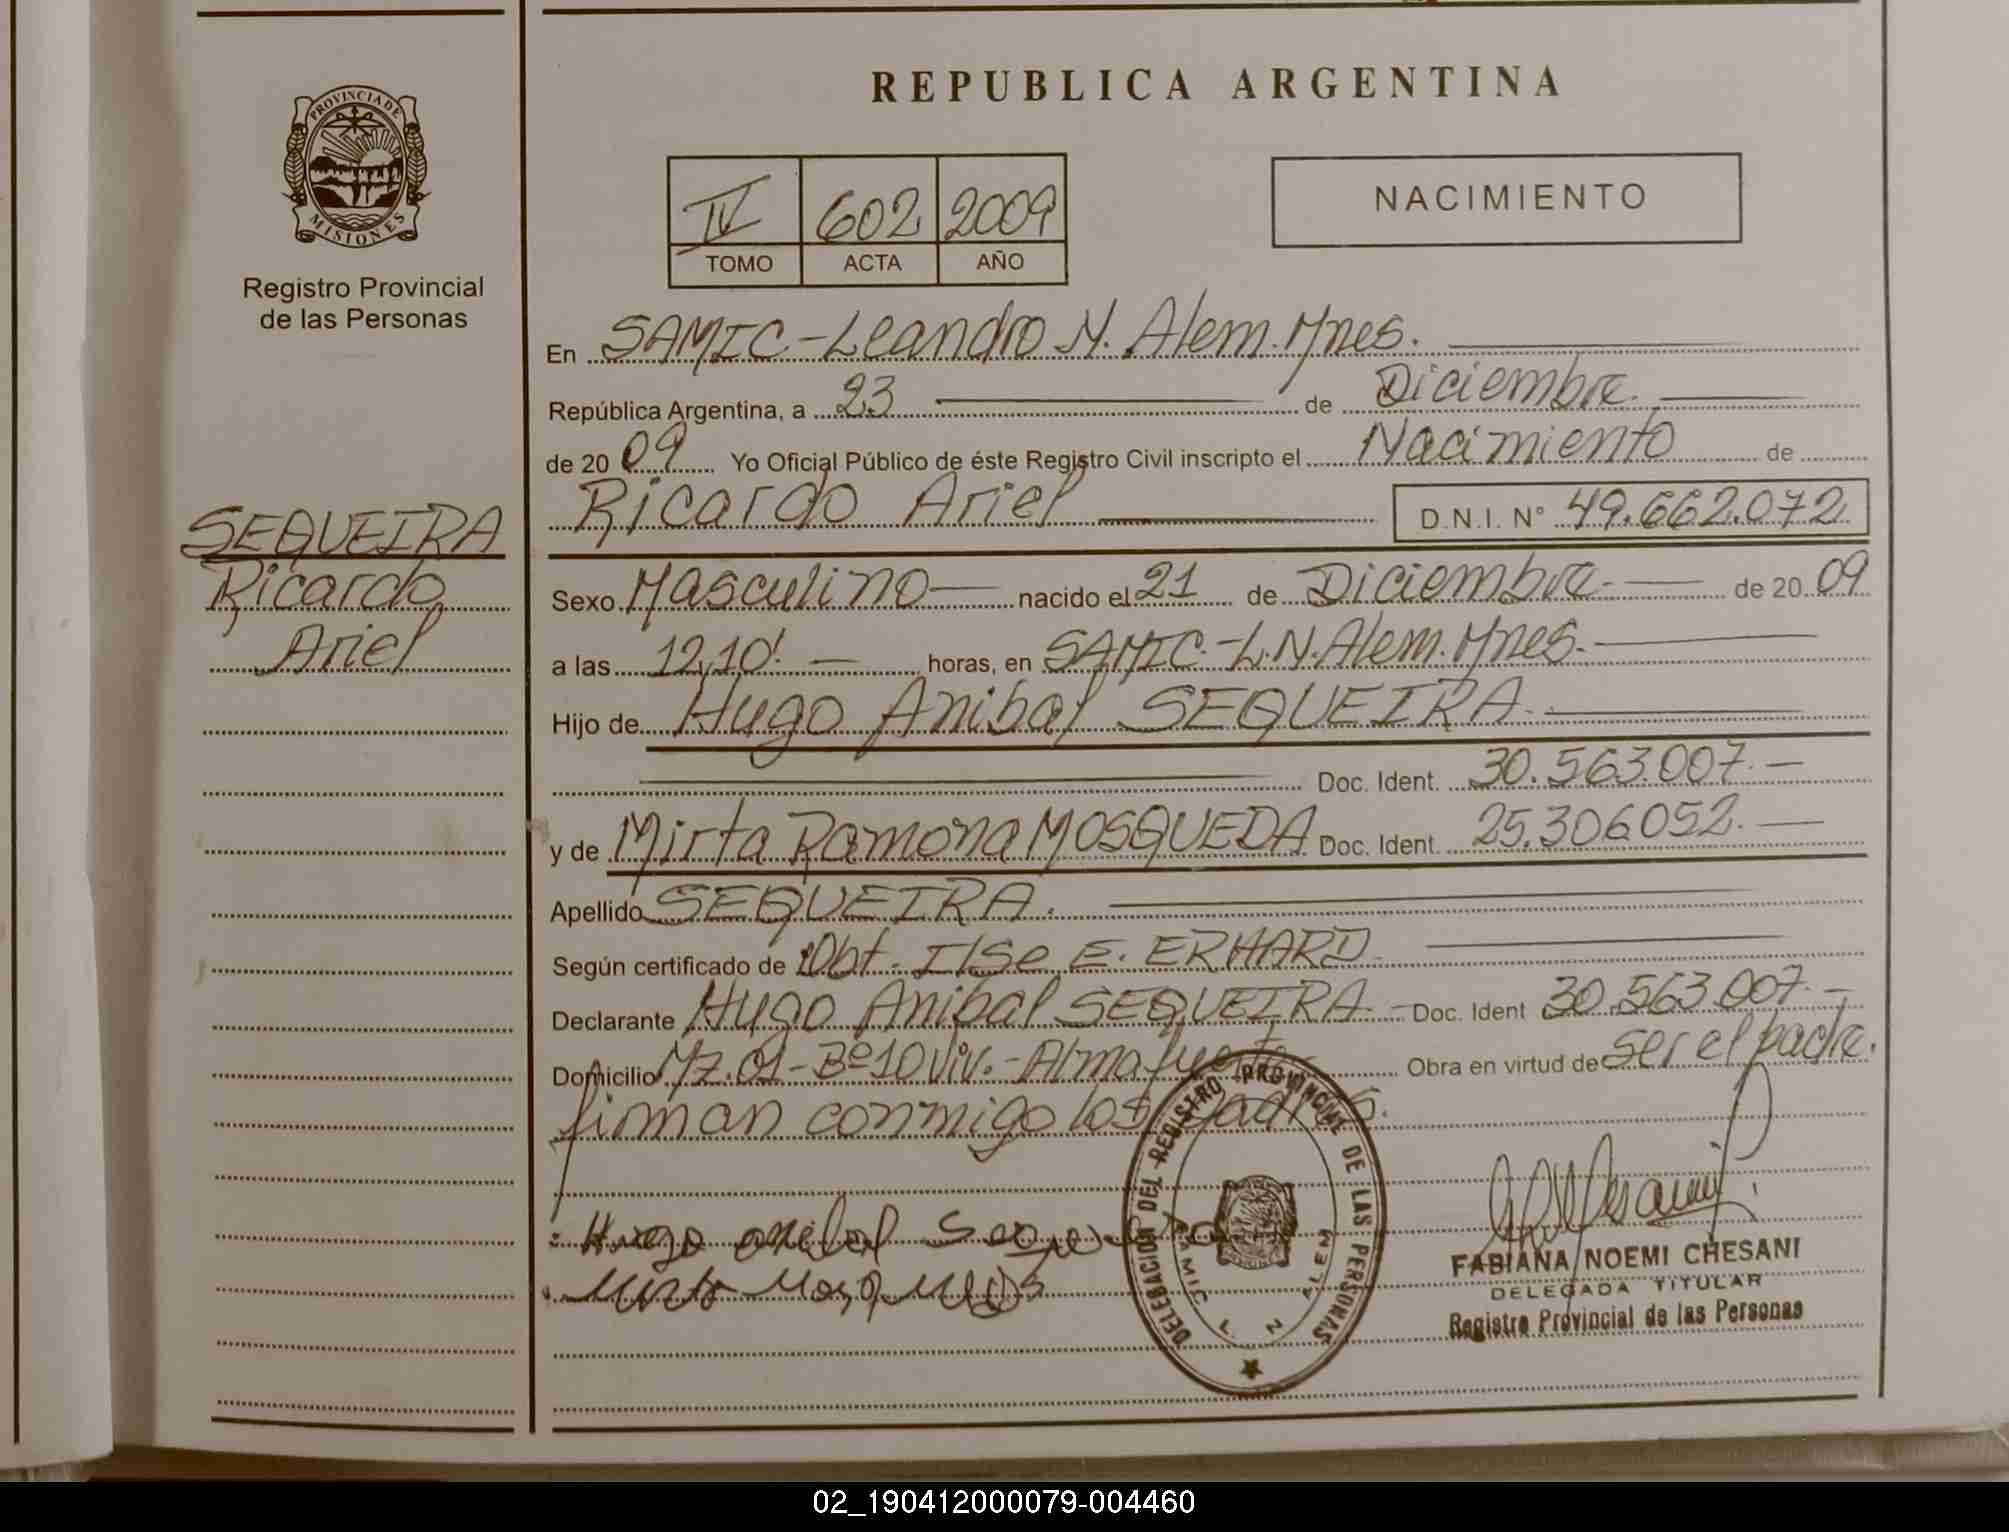 REPUBLICA ARGENTINA
PROVINCIA DE
MISIONES
Registro Provincial
de las Personas
IV 602 2009
TOMO ACTA AÑO
NACIMIENTO
En SAMIC-Leandro N. Alem. Mnes.
República Argentina, a 23 de Diciembre.
de 20 09 Yo Oficial Público de éste Registro Civil inscripto el Nacimiento de
Ricardo Ariel D.N.I. N° 49.662.072
SEQUEIRA
Ricardo
Ariel
Sexo Masculino nacido el 21 de Diciembre. de 20 09
a las 12,10'. horas, en SAMIC.-L.N.Alem.Mnes.
Hijo de Hugo Anibal SEQUEIRA.
Doc. Ident. 30.563.007.
y de Mirta Ramona MOSQUEDA Doc. Ident. 25.306.052.
Apellido SEQUEIRA.
Según certificado de Obt. Ilse E. ERHARD
Declarante Hugo Anibal SEQUEIRA. Doc. Ident 30.563.007.
Domicilio Mz.01-Bº10Viv.-Almafuerte Obra en virtud de ser el padre.
firman conmigo los padres.
Hugo anibal Sequeira
Mirta Mosqueda
DELEGACION DEL REGISTRO PROVINCIAL DE LAS PERSONAS
SAMIC L N ALEM
FABIANA NOEMI CHESANI
DELEGADA TITULAR
Registro Provincial de las Personas
02_190412000079-004460